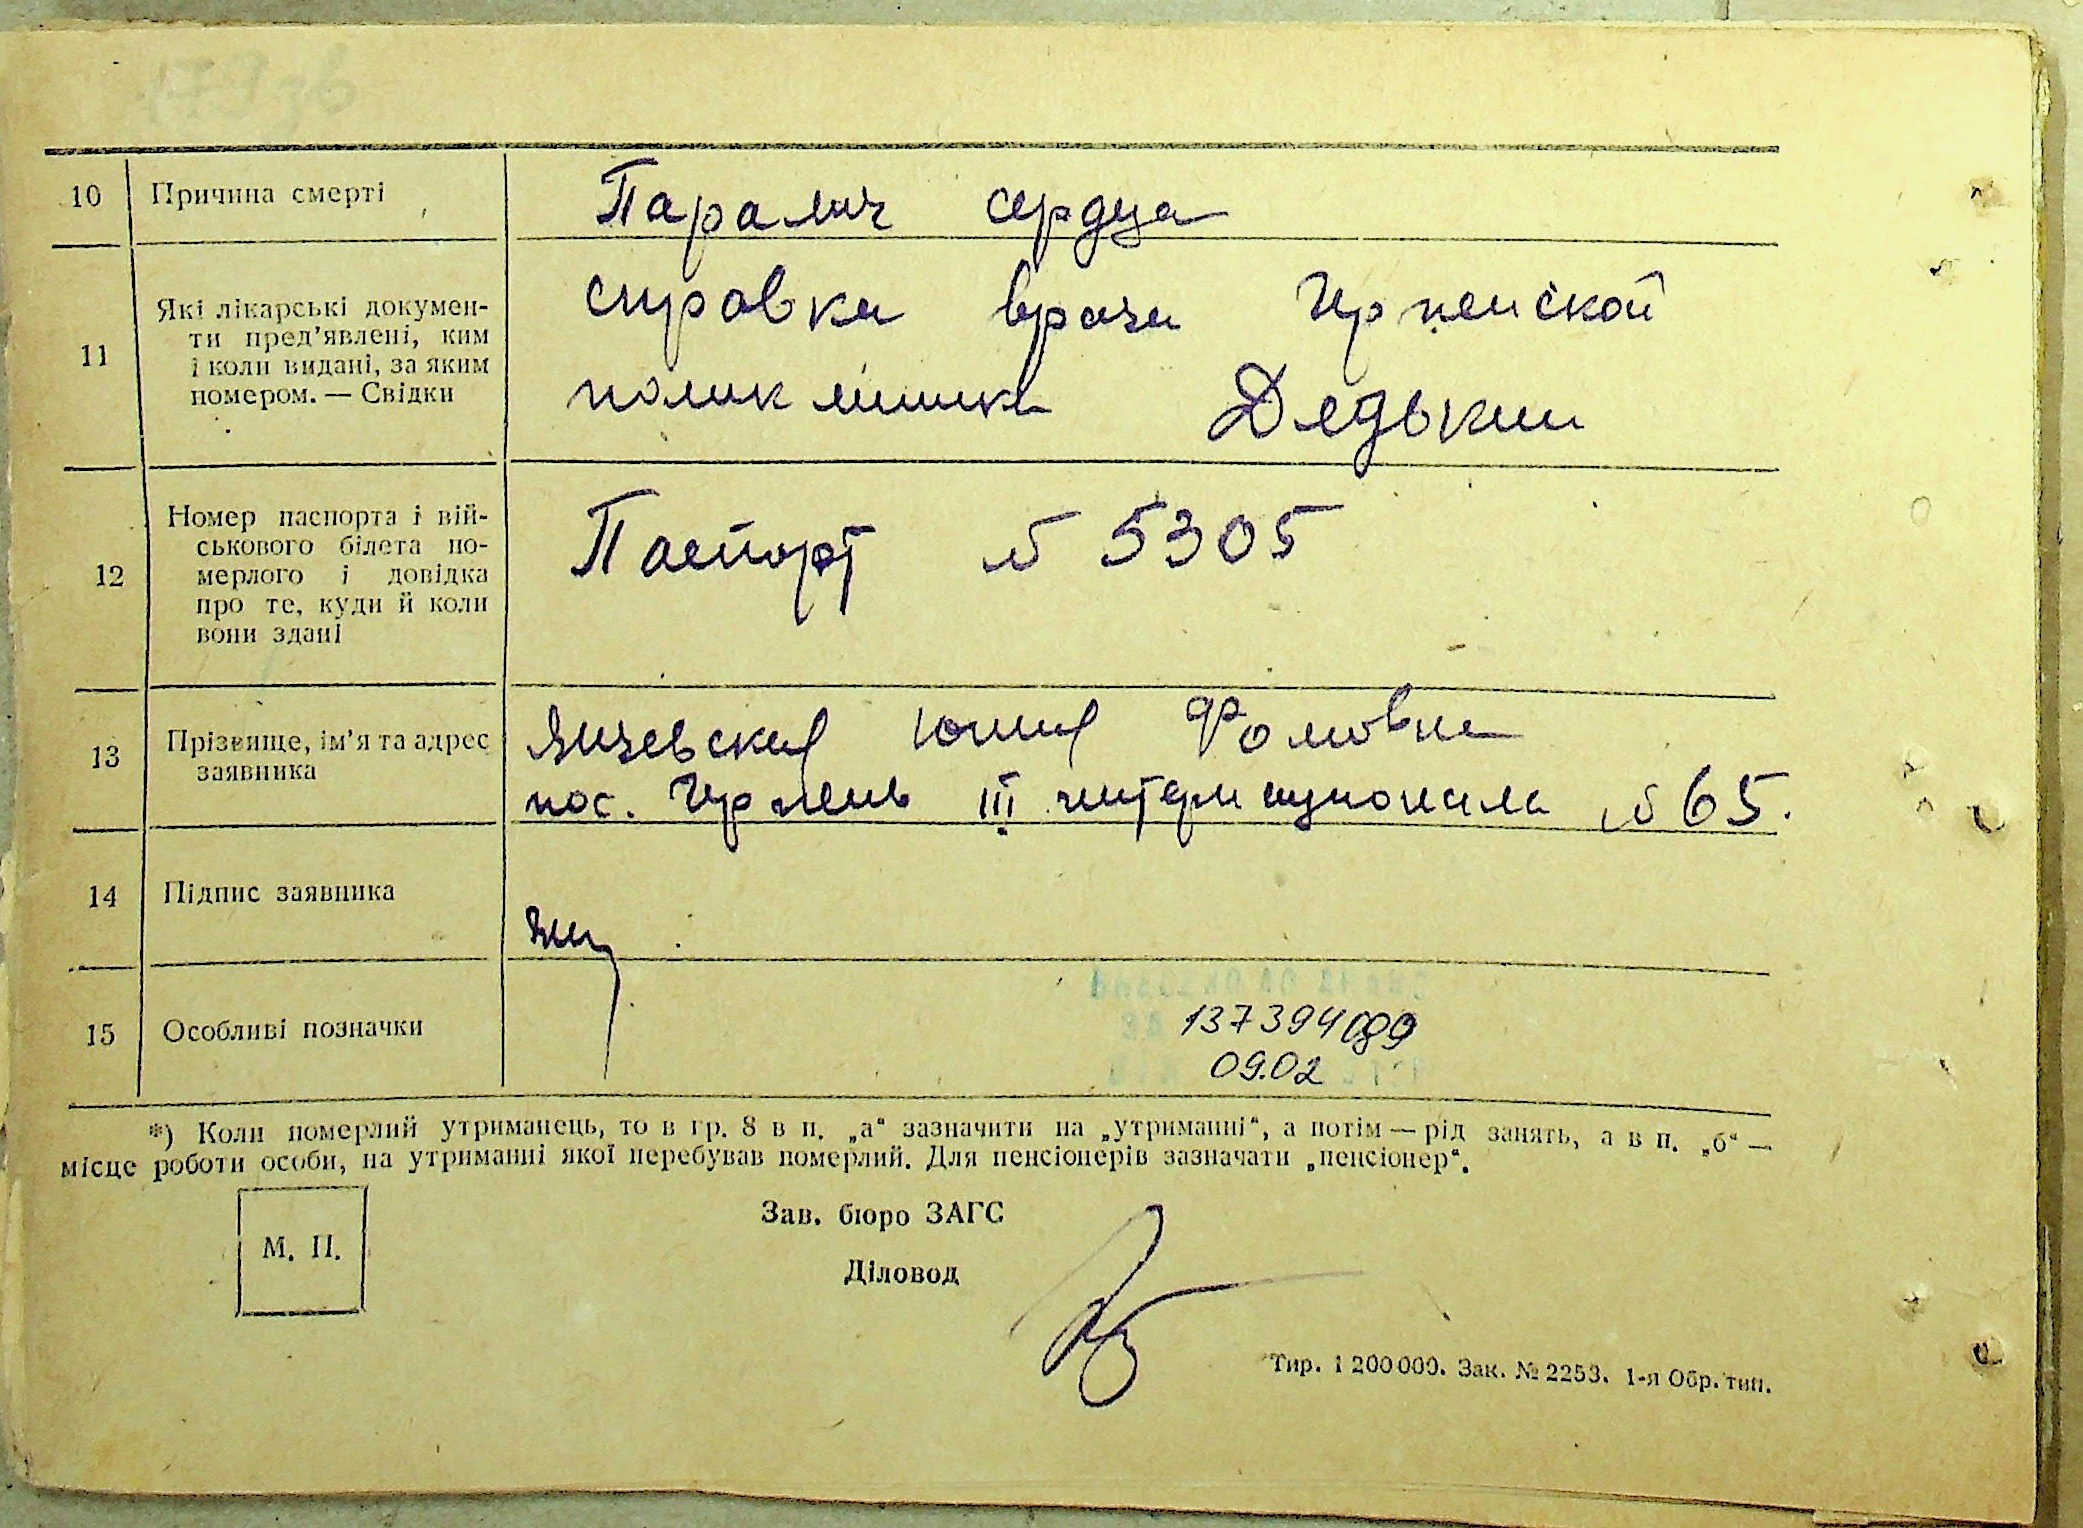 10 Причина смерті Паралич сердца
11 Які лікарські докумен-
ти пред'явлені, ким
і коли видані, за яким
номером. — Свідки
справка врача Ирпенской
поликлиники Дядькин
12 Номер паспорта і вій-
ськового білета по-
мерлого і довідка
про те, куди й коли
вони здані
Паспорт № 5305
13 Прізвище, ім'я та адрес
заявника
Янчевская Юлия Фомовна
пос. Ирпень III интернационала № 65.
14 Підпис заявника
15 Особливі позначки
137394089
09.02
*) Коли померлий утриманець, то в гр. 8 в п. „а“ зазначити на „утриманні“, а потім — рід занять, а в п. „б“ —
місце роботи особи, на утриманні якої перебував померлий. Для пенсіонерів зазначати „пенсіонер“.
М. П.
Зав. бюро ЗАГС
Діловод
Тир. 1 200 000. Зак. № 2253. 1-я Обр. тип.